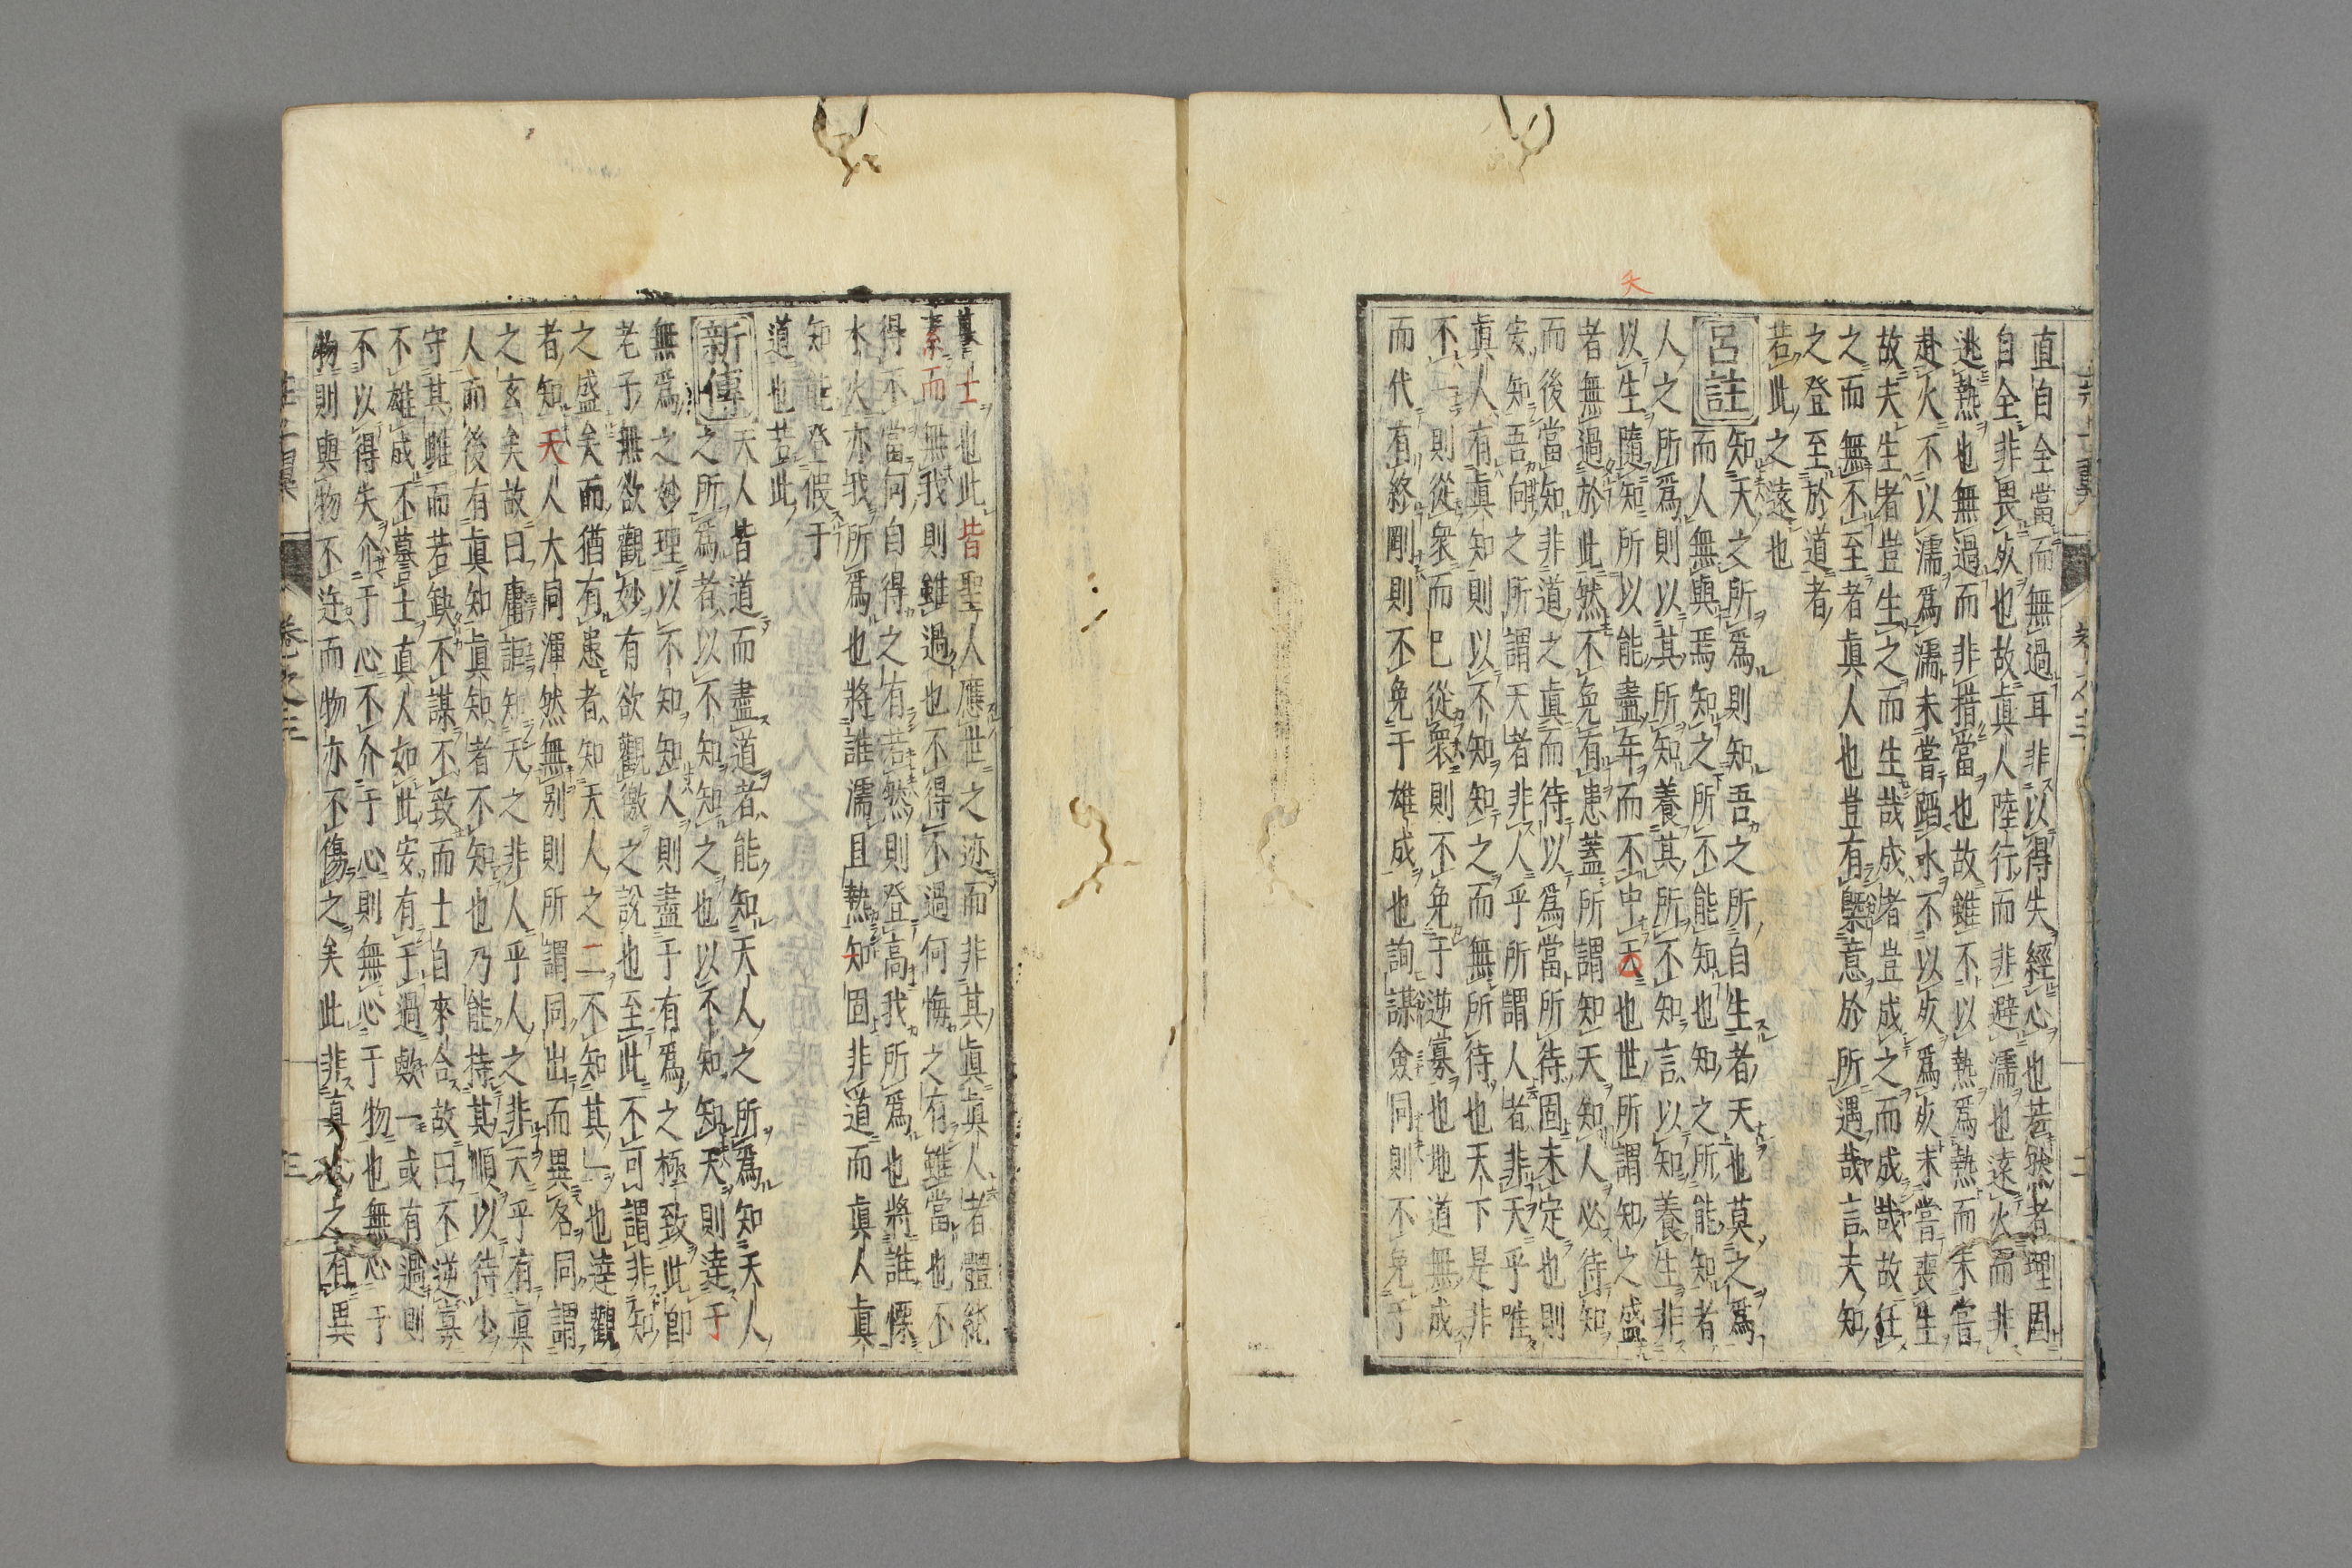 直自全當而無過耳非以得失經心也若然者理固
自全非畏死也故真人陸行而非避濡也遠火而非
逃熱也無過而非措當也故雖不以熱爲熱而未嘗
赴火不以濡爲濡未嘗蹈水不以死爲死未嘗喪生
故夫生者豈生之而生哉成者豈成之而成哉故任
之而無不至者真人也豈有槩意於所遇哉言夫知
之登至於道者
若此之遠也
呂註
知天之所爲則知吾之所自生者天也莫之爲
而人無與焉知之所不能知也知之所能知者
人之所爲則以其所知養其所不知言以知養生非
以生隨知所以能盡年而不中夭也世所謂知之盛
者無過於此然不免有患蓋所謂知天知人必待知
而後當知非道之真而待以爲當所待固未定也則
安知吾向之所謂天者非人乎所謂人者非天乎唯
真人有真知則以不知知之而無所待也天下是非
不一則從衆而已從衆則不免于逆寡也地道無成
而代有終剛則不免于雄成也詢謀僉同則不免于
謩士也此皆聖人應世之迹而非其真真人者體純
素而無我則雖過也不得不過何悔之有雖當也不
得不當何自得之有若然則登高我所爲也將誰慄
水火亦我所爲也將誰濡且熱知固非道而真人真
知能登假于
道也若此
新傳
天人皆道而盡道者能知天人之所爲知天人
之所爲者以不知知之也以不知知天則達于
無爲之妙理以不知知人則盡于有爲之極致此卽
老子無欲觀妙有欲觀徼之說也至此不可謂非知
之盛矣而猶有患者知天人之二不知其一也達觀
者知天人大同渾然無别則所謂同出而異名同謂
之玄矣故曰庸詎知天之非人乎人之非天乎有真
人而後有真知真知者不知知也乃能待其順以待少
守其雌而若缺不謀不致而士自來合故曰不逆寡
不雄成不謩士真人如此安有于過歟一或有過則
不以得失介于心不介于心則無心于物也無心于
物則與物不迕而物亦不傷之矣此非真人之有異
卷之三
三